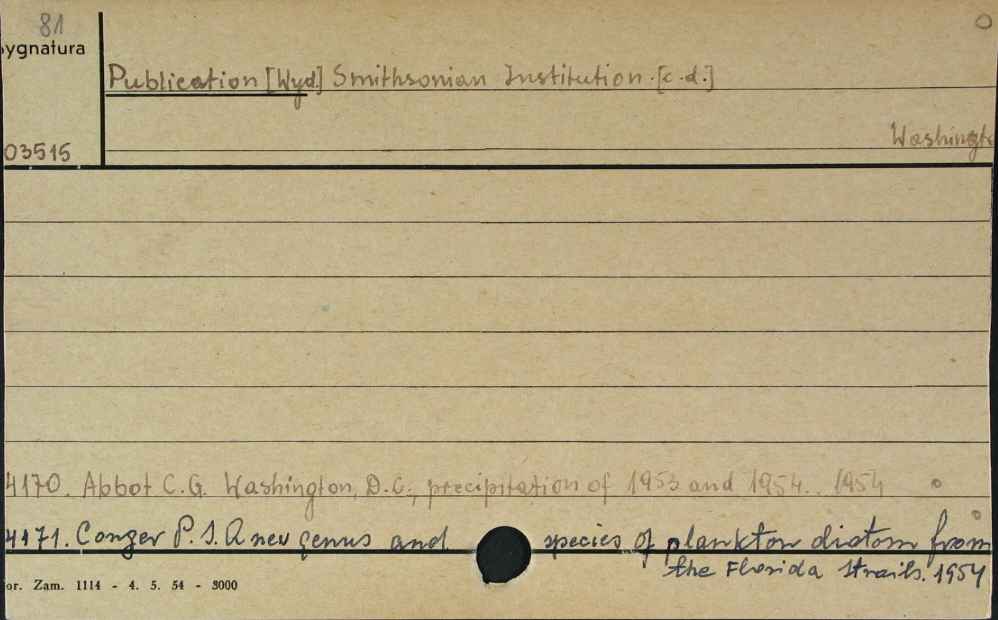 81
ygnatura
Publication [Wyd.] Smithsonian Institution. [c.d.]
Washingto
03515
4170. Abbot C.G. Washington, D.C., precipitation of 1953 and 1954.. 1954
4171. Conger P.S. A new genus and species of plankton diatom from
the Florida Straits. 1954
or. Zam. 1114 - 4. 5. 54 - 3000